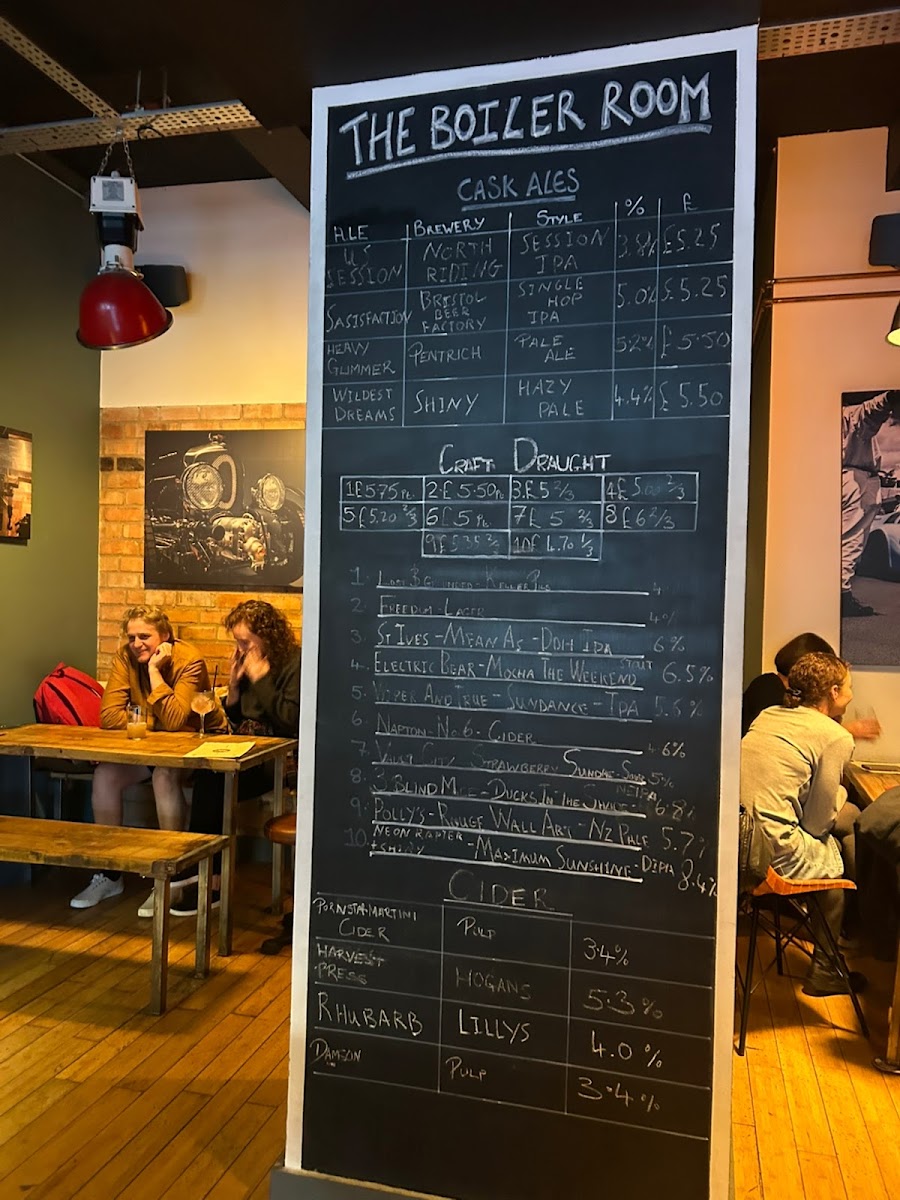 THE BOILER ROOM
CASK ALES
ALE BREWERY STYLE % £
US SESSION NORTH RIDING SESSION IPA 3.8% £5.25
SASISFACTION BRISTOL BEER FACTORY SINGLE HOP IPA 5.0% £5.25
HEAVY GLIMMER PENTRICH PALE ALE 5.2% £5.50
WILDEST DREAMS SHINY HAZY PALE 4.4% £5.50
CRAFT DRAUGHT
1£5.75 Pt. 2.£5.50 Pt. 3.£5 2/3 4£5.00 2/3
5£5.20 2/3 6£5 Pt. 7£5 2/3 8£6 2/3
9£5.35 2/3 10£4.70 1/3
1. KELLER PILS 4
2. FREEDOM - LAGER 4%
3. ST IVES - MEAN AS - DDH IPA 6%
4. ELECTRIC BEAR - MOCHA THE WEEKEND STOUT 6.5%
5. VIPER AND TRUE - SUNDANCE - IPA 5.%
6. NAPTON - NO.6 - CIDER 4.6%
7. VAULT CITY STRAWBERRY SUNDAE - SOUR 5%
8. 3 BLIND MICE - DUCKS IN THE NEIPA 6.8%
9. POLLY'S - ROUGE WALL ART - NZ PALE 5.7%
10. NEON RAPTER + SHINY - MAXIMUM SUNSHINE - DIPA 8.4%
CIDER
PORNSTAR MARTINI CIDER PULP 3.4%
HARVEST PRESS HOGANS 5.3%
RHUBARB LILLYS 4.0%
DAMSON PULP 3.4%